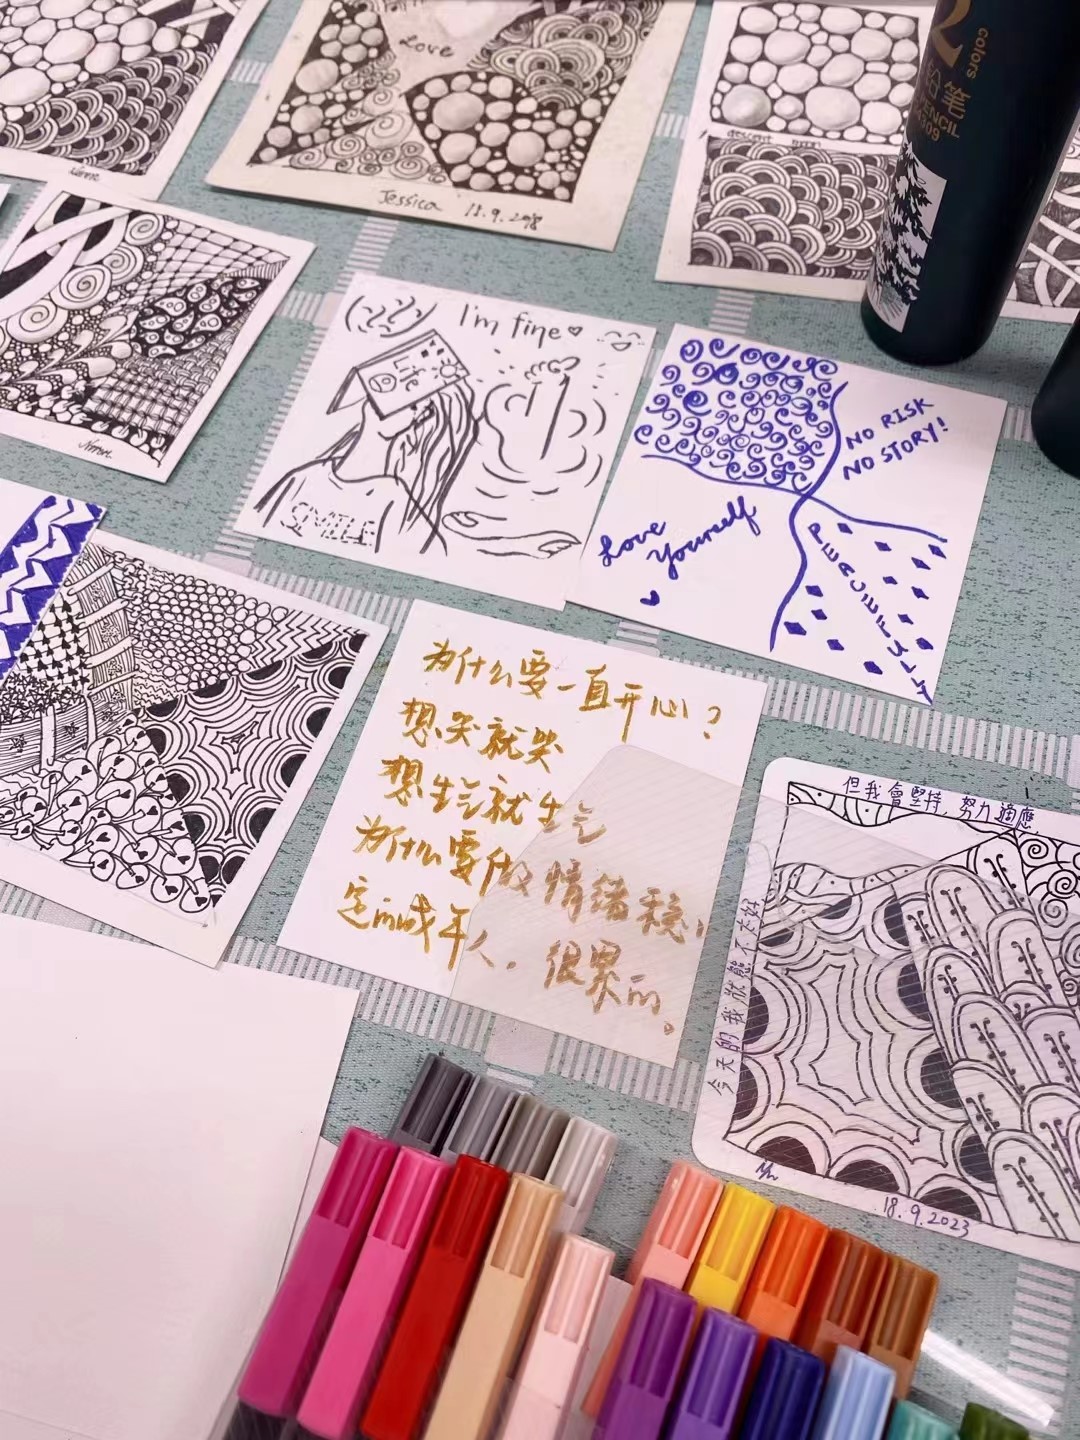 Love
Jessica 18.9.2018
2
colors
铅笔
PENCIL
I'm fine
Life
SMILE
NO RISK
NO STORY!
Love
Yourself
PEACEFULLY
为什么要一直开心？
想哭就哭
想生气就生气
为什么要做情绪稳
定的成年人，很累的。
但我會堅持，努力適應，
今天的我狀態不太好
18.9.2023